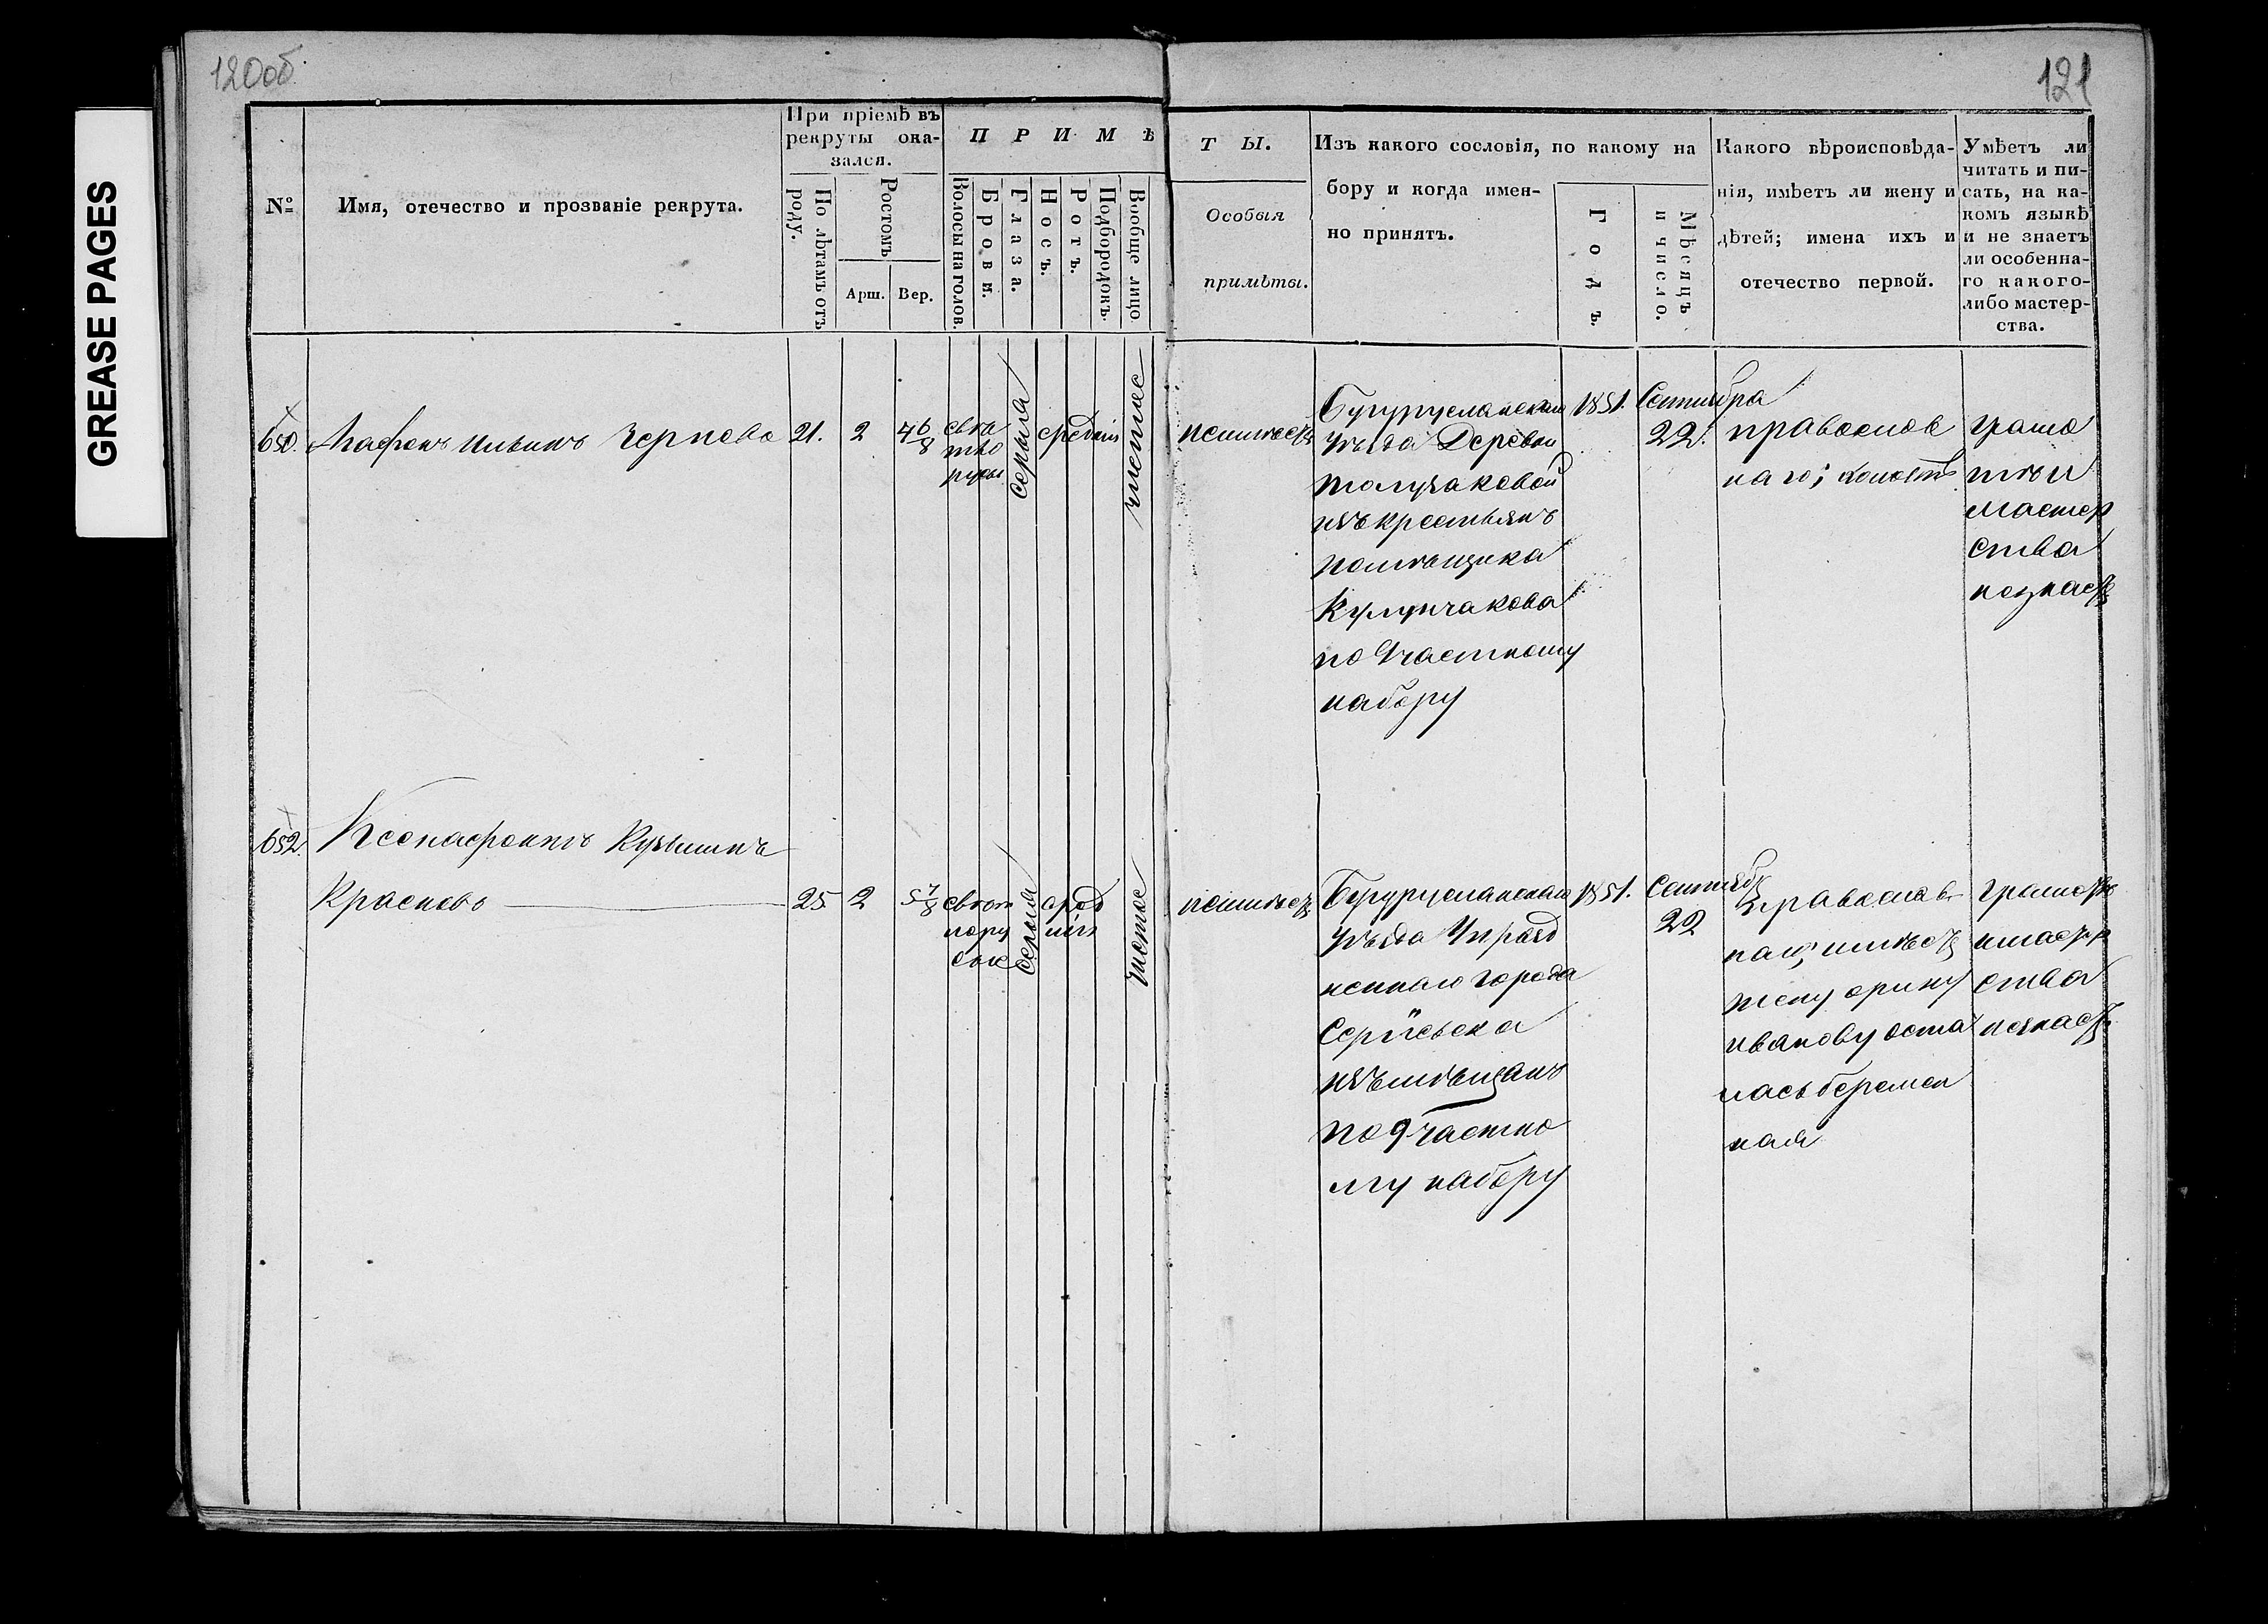 120об.
121
GREASE PAGES
№
Имя, отечество и прозваніе рекрута.
При пріемѣ въ
рекруты ока-
зался.
По лѣтамъ отъ
роду.
Ростомъ
Арш.
Вер.
П Р И М Ѣ
Волосы на голов.
Брови.
Глаза.
Носъ.
Ротъ.
Подбородокъ.
Вообще лицо
Т Ы.
Особыя
примѣты.
Изъ какого сословія, по какому на
бору и когда имен-
но принятъ.
Годъ.
Мѣсяцъ
и число.
Какого вѣроисповѣда-
нія, имѣетъ ли жену и
дѣтей; имена ихъ и
отечество первой.
Умѣетъ ли
читать и пи-
сать, на ка-
комъ языкѣ
и не знаетъ
ли особенна-
го какого-
либо мастер-
ства.
Ильинъ Черновъ
21.
2
4 6/8
русы
серыя
средніи
чистое
неимѣетъ
Бугурусланскаго
уѣзда Деревни
изъ крестьянъ
помѣщика
Кулунчакова
по Участному
набору
1851.
Сентября
22.
православ
наго; холостъ
грамо
ты и
мастер
ства
незнаетъ
652.
Ксенафонтъ Кузьминъ
Красновъ
25
2
5 7/8
светл
лору
сые
серыя
сред
нія
чистое
неимѣетъ
Бугурусланскаго
уѣзда Упразд
неннаго города
Сергіевска
изъ мѣщанъ
по Участно
му набору
1851.
Сентября
22
Православ
наго; имѣетъ
жену орину
иванову оста
лась беремен
ная
грамоты
имастер
ства
незнаетъ